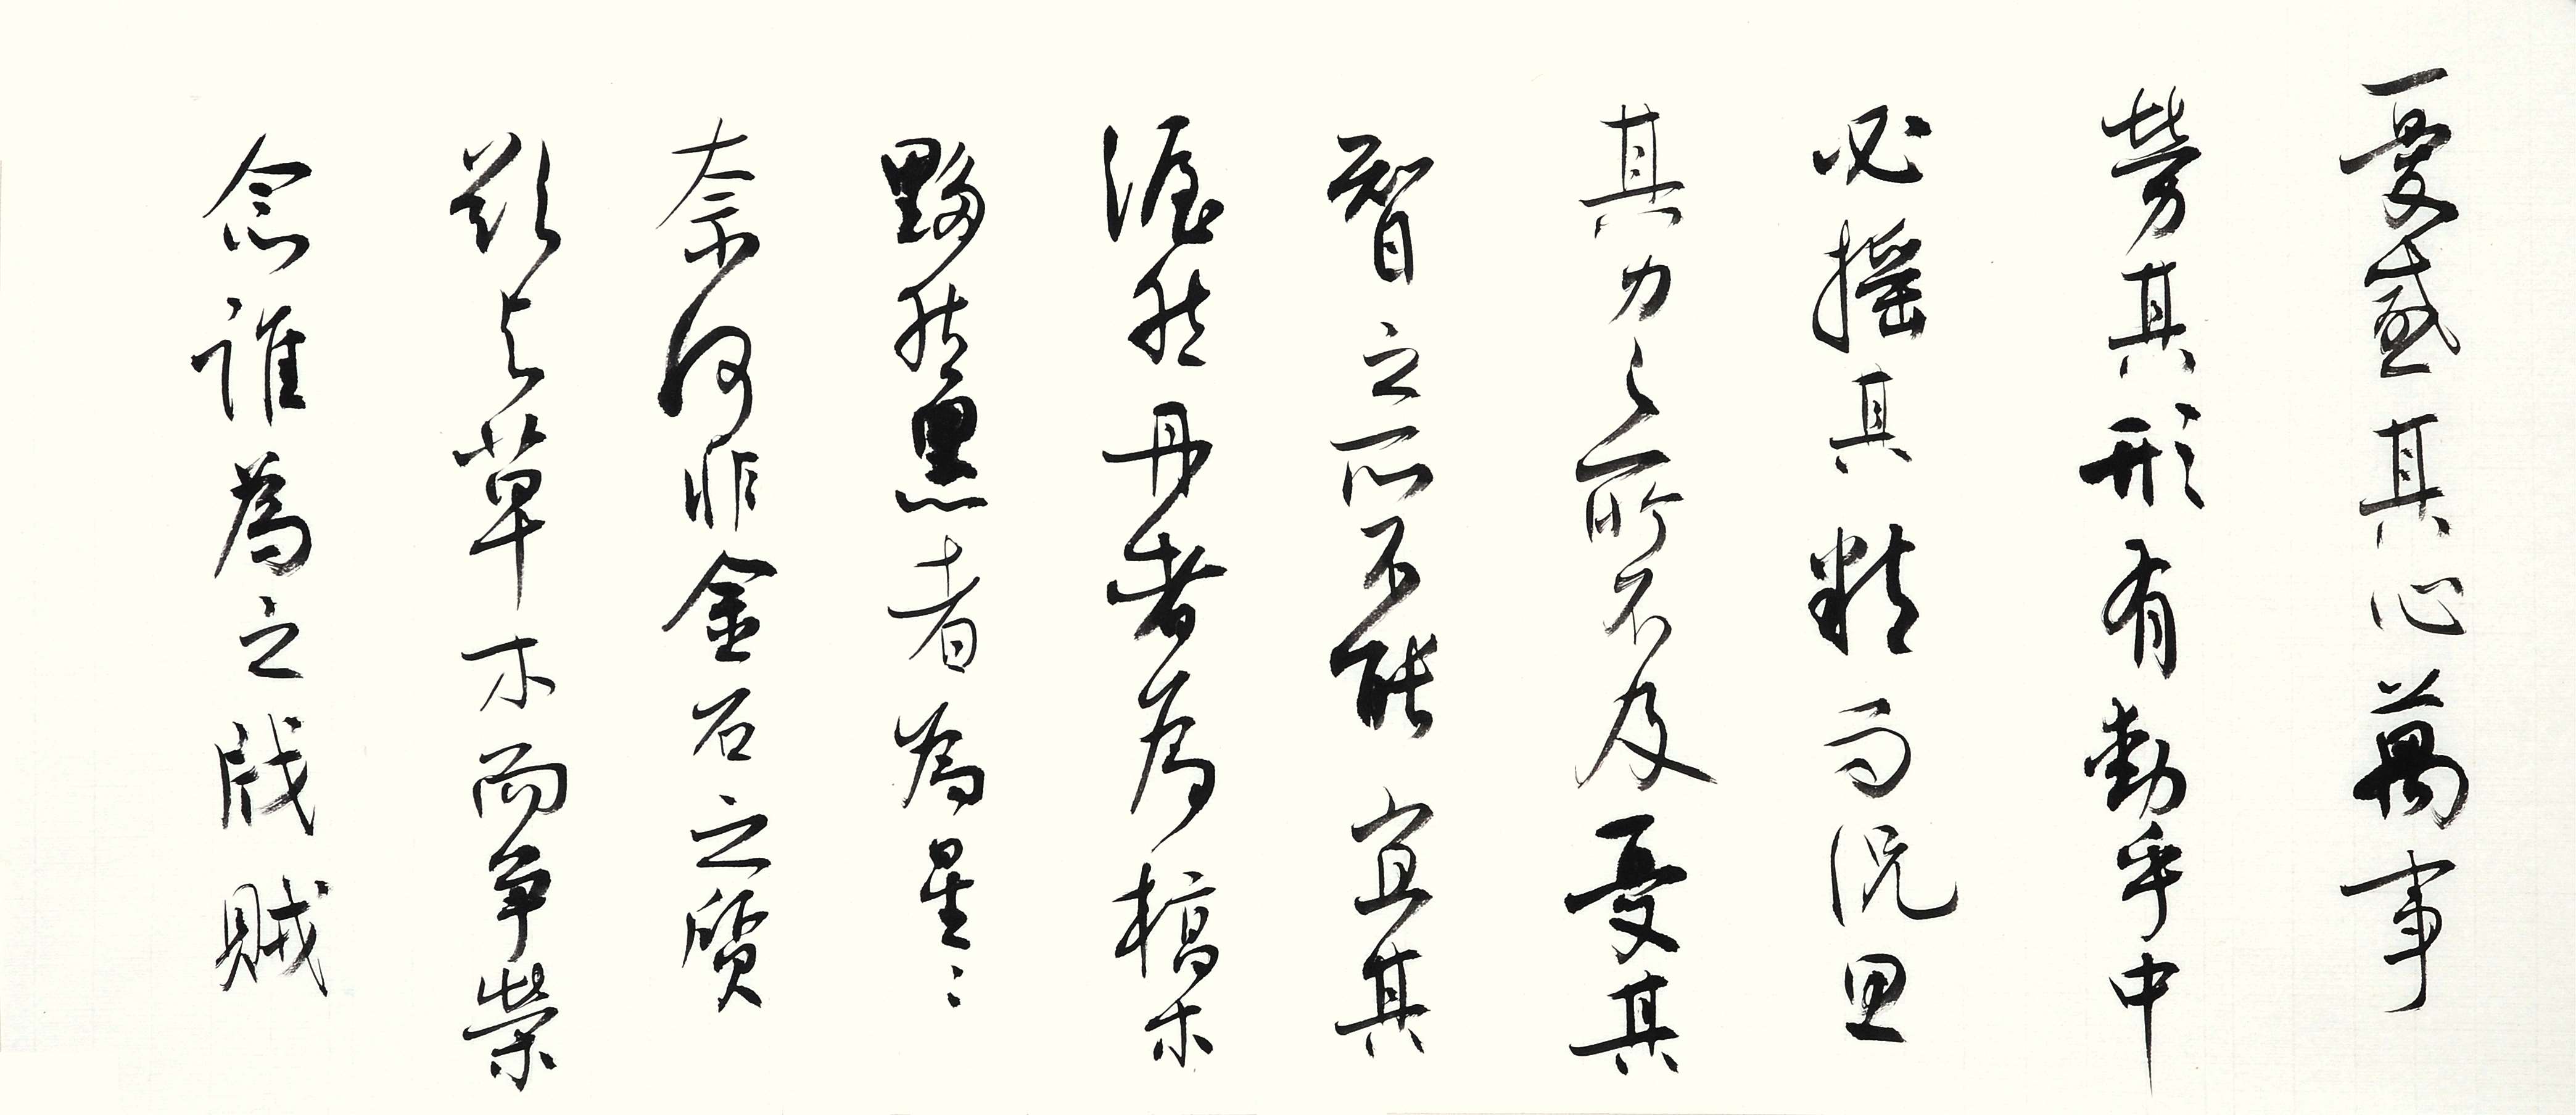 憂感其心萬事
勞其形有動乎中
必搖其精而況思
其力之所不及憂其
智之所不能宜其
渥然丹者為槁木
黟然黑者為星〻
奈何非金石之質
欲与草木而爭榮
念誰為之戕賊